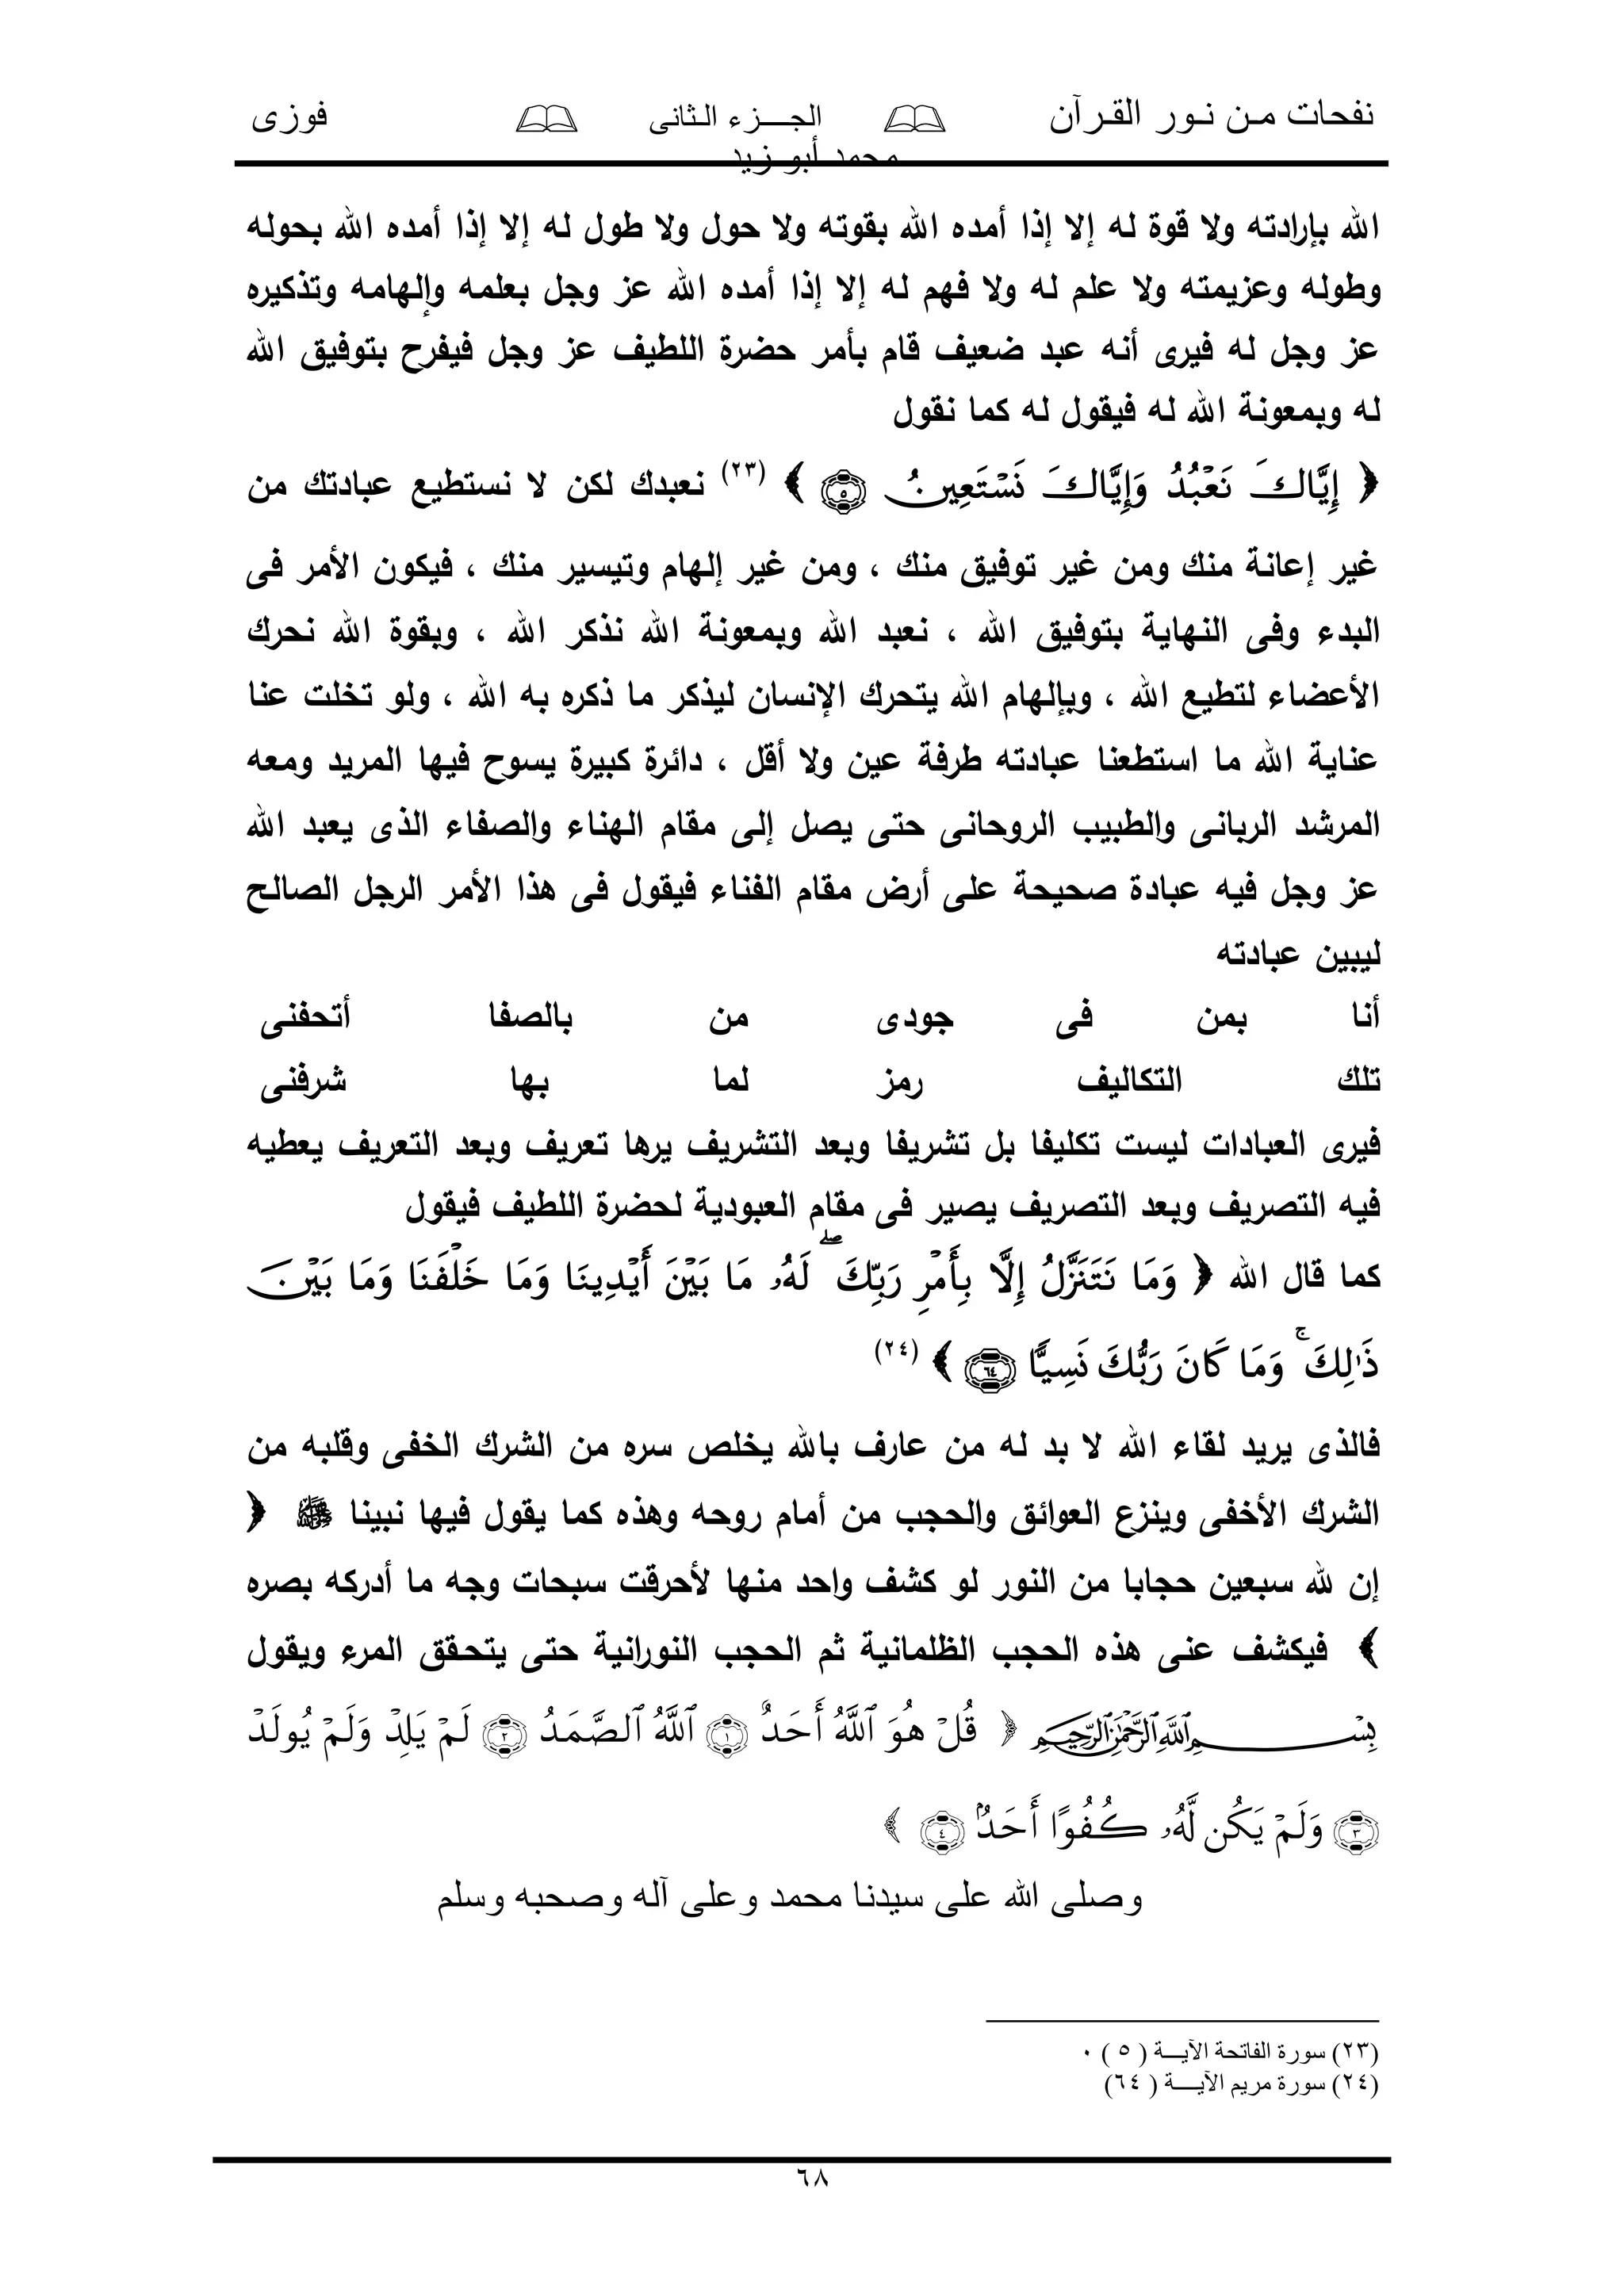 نفحات مـن نـور القـرآن 🕮 الجــــزء الـثانى 🕮 فوزى
محمد أبو زيد
الله بإرادته ولا قوة له إلا إذا أمده الله بقوته ولا حول ولا طول له إلا إذا أمده الله بحوله
وطوله وعزيمته ولا علم له ولا فهم له إلا إذا أمده الله عز وجل بعلمه وإلهامه وتذكيره
عز وجل له فيرى أنه عبد ضعيف قام بأمر حضرة اللطيف عز وجل فيفرح بتوفيق الله
له وبمعونة الله له فيقول له كما نقول
﴿ إِيَّاكَ نَعْبُدُ وَإِيَّاكَ نَسْتَعِينُ ۝٥ ﴾ (٢٣) نعبدك لكن لا نستطيع عبادتك من
غير إعانة منك ومن غير توفيق منك ، ومن غير إلهام وتيسير منك ، فيكون الأمر فى
البدء وفى النهاية بتوفيق الله ، نعبد الله وبمعونة الله نذكر الله ، وبقوة الله نحرك
الأعضاء لتطيع الله ، وبإلهام الله يتحرك الإنسان ليذكر ما ذكره به الله ، ولو تخلت عنا
عناية الله ما استطعنا عبادته طرفة عين ولا أقل ، دائرة كبيرة يسوح فيها المريد ومعه
المرشد الربانى والطبيب الروحانى حتى يصل إلى مقام الهناء والصفاء الذى يعبد الله
عز وجل فيه عبادة صحيحة على أرض مقام الفناء فيقول فى هذا الأمر الرجل الصالح
ليبين عبادته
أنا بمن فى جودى من بالصفا أتحفنى
تلك التكاليف رمز لما بها شرفنى
فيرى العبادات ليست تكليفا بل تشريفا وبعد التشريف يرها تعريف وبعد التعريف يعطيه
فيه التصريف وبعد التصريف يصير فى مقام العبودية لحضرة اللطيف فيقول
كما قال الله ﴿ وَمَا نَتَنَزَّلُ إِلَّا بِأَمْرِ رَبِّكَ ۖ لَهُۥ مَا بَيْنَ أَيْدِينَا وَمَا خَلْفَنَا وَمَا بَيْنَ
ذَٰلِكَ ۚ وَمَا كَانَ رَبُّكَ نَسِيًّا ۝٦٤ ﴾ (٢٤)
فالذى يريد لقاء الله لا بد له من عارف بالله يخلص سره من الشرك الخفى وقلبه من
الشرك الأخفى وينزع العوائق والحجب من أمام روحه وهذه كما يقول فيها نبينا ﷺ ﴿
إن لله سبعين حجابا من النور لو كشف واحد منها لأحرقت سبحات وجه ما أدركه بصره
﴾ فيكشف عنى هذه الحجب الظلمانية ثم الحجب النورانية حتى يتحقق المرء ويقول
بِسْمِ ٱللَّهِ ٱلرَّحْمَٰنِ ٱلرَّحِيمِ ﴿ قُلْ هُوَ ٱللَّهُ أَحَدٌ ۝١ ٱللَّهُ ٱلصَّمَدُ ۝٢ لَمْ يَلِدْ وَلَمْ يُولَدْ
۝٣ وَلَمْ يَكُن لَّهُۥ كُفُوًا أَحَدٌۢ ۝٤ ﴾
وصلى الله على سيدنا محمد وعلى آله وصحبه وسلم
(٢٣) سورة الفاتحة الآيـــة ( ٥ ) ٠
(٢٤) سورة مريم الآيــــة ( ٦٤)
٦٨